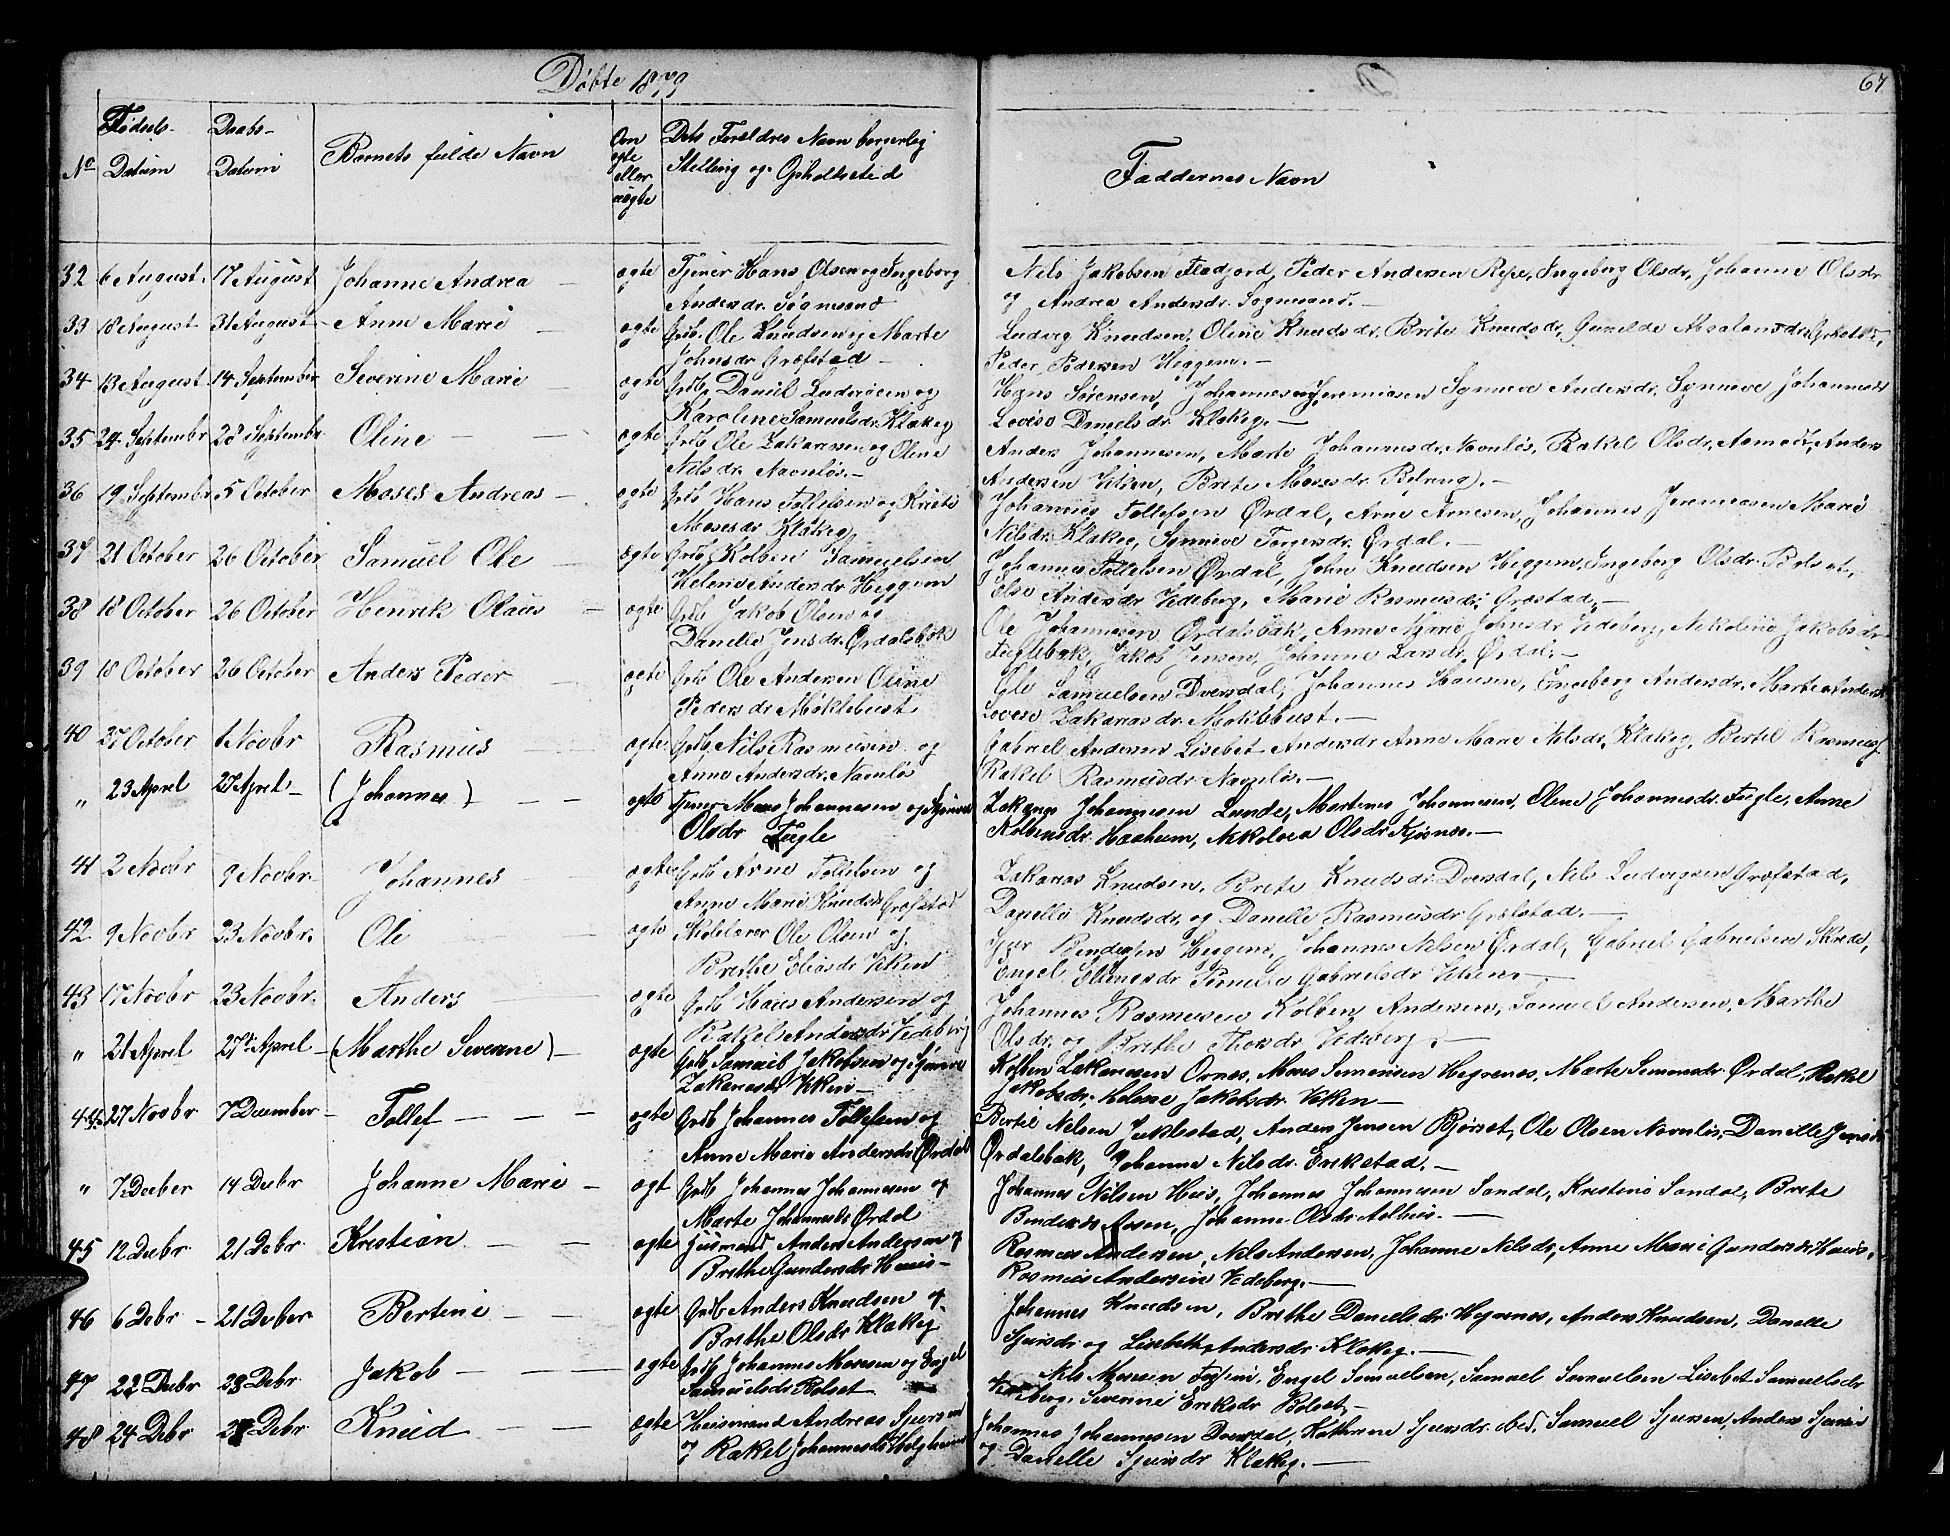 Døbte 1879
67
No
Fødsels-
Datum
Daabs-
Datum
Barnets fulde Navn
Om
ægte
eller
uægte
Dets Forældres Navn borgerlig
Stilling og Opholtssted
Faddernes Navn
32 6 August 17 August Johanne Andrea ægte Tjener Hans Olsen og Ingeborg
Andersdr. Sognesand
Nils Jakobsen Flødjord, Peder Andersen Ripe, Ingeborg Olsdr, Johanne Olsdr
og Andrea Andersdr. Sognesand.
33 18 August 31 August Anne Marie ægte Grdb. Ole Knudsen og Marte
Johnsdr. Græfstad
Ludvig Knudsen, Oline Knudsdr, Brite Knudsdr, Gunilde
Peder Pedersen Heggem.
34 13 August 14 September Severine Marie ægte Grdb. Daniel og
Karoline Samuelsdr. Klakeg
Hans Sørensen, Johannes Jeremiasen Synneve Andersdr. Synneve Johannes
Lovise Danielsdr. Klakeg.
35 24 Septembr 28 Septembr Oline ægte Grdb. Ole Zakariasen og Oline
Nilsdr. Navnløs.
Anders Johannesen, Marte Johannesdr. Navnløs, Rakel Olsdr. Anders
Andersen Viken, Brite Mosesdr.
36 19 Septembr 5 October Moses Andreas ægte Grdb. Hans Tollefsen og Kriste
Mosesdr. Klakeg
Johannes Tollefsen Ørdal, Arne Arnesen, Johannes Jeremiasen Marie
Nilsdr. Klakeg, Synneve Torgersdr. Ørdal.
37 21 October 26 October Samuel Ole ægte Grdb. Kolben Samuelsen
Helene Andersdr Heggem
Johannes Tollefsen Ørdal, John Knudsen Heggem, Ingeborg Olsdr. Bolset,
Else Andersdr Vedeberg, Marie Rasmusdr. Græstad.
38 18 October 26 October Henrik Olaus ægte Grdb. Jakob Olsen og
Danelle Jensdr. Ørdalsbak
Ole Johannesen Ørdalsbak, Anne Marie Johnsdr Vedeberg, Nikoline Jakobsdr
Fuglebak, Jakob Jensen, Johanne Larsdr. Ørdal.
39 18 October 26 October Anders Peder ægte Grdb. Ole Andersen Oline
Pedersdr Møklebust
Ole Samuelsen Dvergsdal, Johannes Hansen, Engeborg Andersdr. Marte Anders
Lovise Zakariasdr. Møklebust.
40 October 1 Novbr Rasmus ægte Grdb. Nils Rasmusen og
Anne Andersdr. Navnløs
Gabriel Andersen Lisebet Andersdr Anne Marie Nilsdr. Klakeg, Bertil Rasmus
Rakel Rasmusdr Navnløs.
" 23 April 27 April (Johannes) ægte Tjener Mons Johannesen og Synneve
Olsdr Fugle
Zakarias Johannesen Lunde, Martines Johannesen, Oline Johannesdr. Fugle, Anne
Kolbensdr. Haaheim, Nikolea Olsdr. Kjøsnes.
41 2 Novbr 9 Novbr. Johannes ægte Grdb. Arne Tollefsen og
Anne Marie Knudsdr Græfstad
Zakarias Knudsen, Brite Knudsdr. Dversdal, Nils Ludvigsen Græfstad,
Danelle Knudsdr, og Danelle Rasmusdr Græfstad.
42 9 Novbr 23 Novbr. Ole ægte Skolelærer Ole Olsen og
Brithe Eliasdr. Viken
Sjur Bendiksen Heggem, Johannes Nilsen Ørdal, Gabriel Gabrielsen Skrede,
Engel Pernelle Gabrielsdr Viken
43 17 Novbr 23 Novbr. Anders ægte Grdb. Hans Andersen og
Rakel Andersdr. Vedeberg
Johannes Rasmusen Kolben Andersen, Samuel Andersen, Marthe
Olsdr. og Brethe Vedeberg.
" 21 April 27de April (Marthe Severine) ægte Grdb. Samuel Jakobsen og Synneve
Zakariasdr Viken
Kolben Zakariasen Ornes, Mons Simonsen Hegrenes, Marte Simonsdr. Ørdal, Rakel
Jakobsdr. Helene Jakobsdr. Viken
44 27 Novbr 7 December Tollef ægte Grdb. Johannes Tollefsen og
Anne Marie Andersdr. Ørdal
Bertil Nilsen Anders Jensen Bjørset, Ole Olsen Navnløs, Danelle Jensdr
Ørdalsbak, Johanne Nilsdr. Erikstad.
" 7 Decber 14 Decbr Johanne Marie ægt Grdb. Johannes Johannesen og
Marte Johannesdr Ørdal
Johannes Nilsen Huus, Johannes Johannesen Sandal, Kristine Sandal, Brite
Bendiksdr Aasen, Johanne Olsdr Aalhus.
45 12 Decbr 21 Debr. Kristian ægte Husmand Anders Andersen og
Brethe Gundersdr. Huus
Rasmus Andersen, Nils Andersen, Johanne Nilsdr, Anne Marie Gundersdr. Huus.
Rasmus Andersen Vedeberg.
46 6 Debr 21 Decber Bertine ægte Grdb. Anders Knudsen og
Brethe Olsdr Klakeg
Johannes Knudsen, Brethe Danielsdr Hegrenes, Anders Knudsen, Danelle
Sjursdr og Lisebeth Andersdr. Klakeg.
47 22 Decbr 28 Debr. Jakob ægte Grdb. Johannes Mosesen og Engel
Samuelsdr Bolset
Nils Mosesen Engel Samuelsen, Samuel Samuelsen Lisebet Samuelsdr
Vedeberg. Severine Eriksdr Bolset
48 24 Debr 28 Debr. Knud ægte Huusmand Andreas Sjursen
og Rakel Johannesdr Helgheim
Johannes Johannesen Dversdal, Kathrine Sjursdr. ibed. Samuel Sjursen, Anders Sjursen
og Danelle Sjursdr Klakeg.